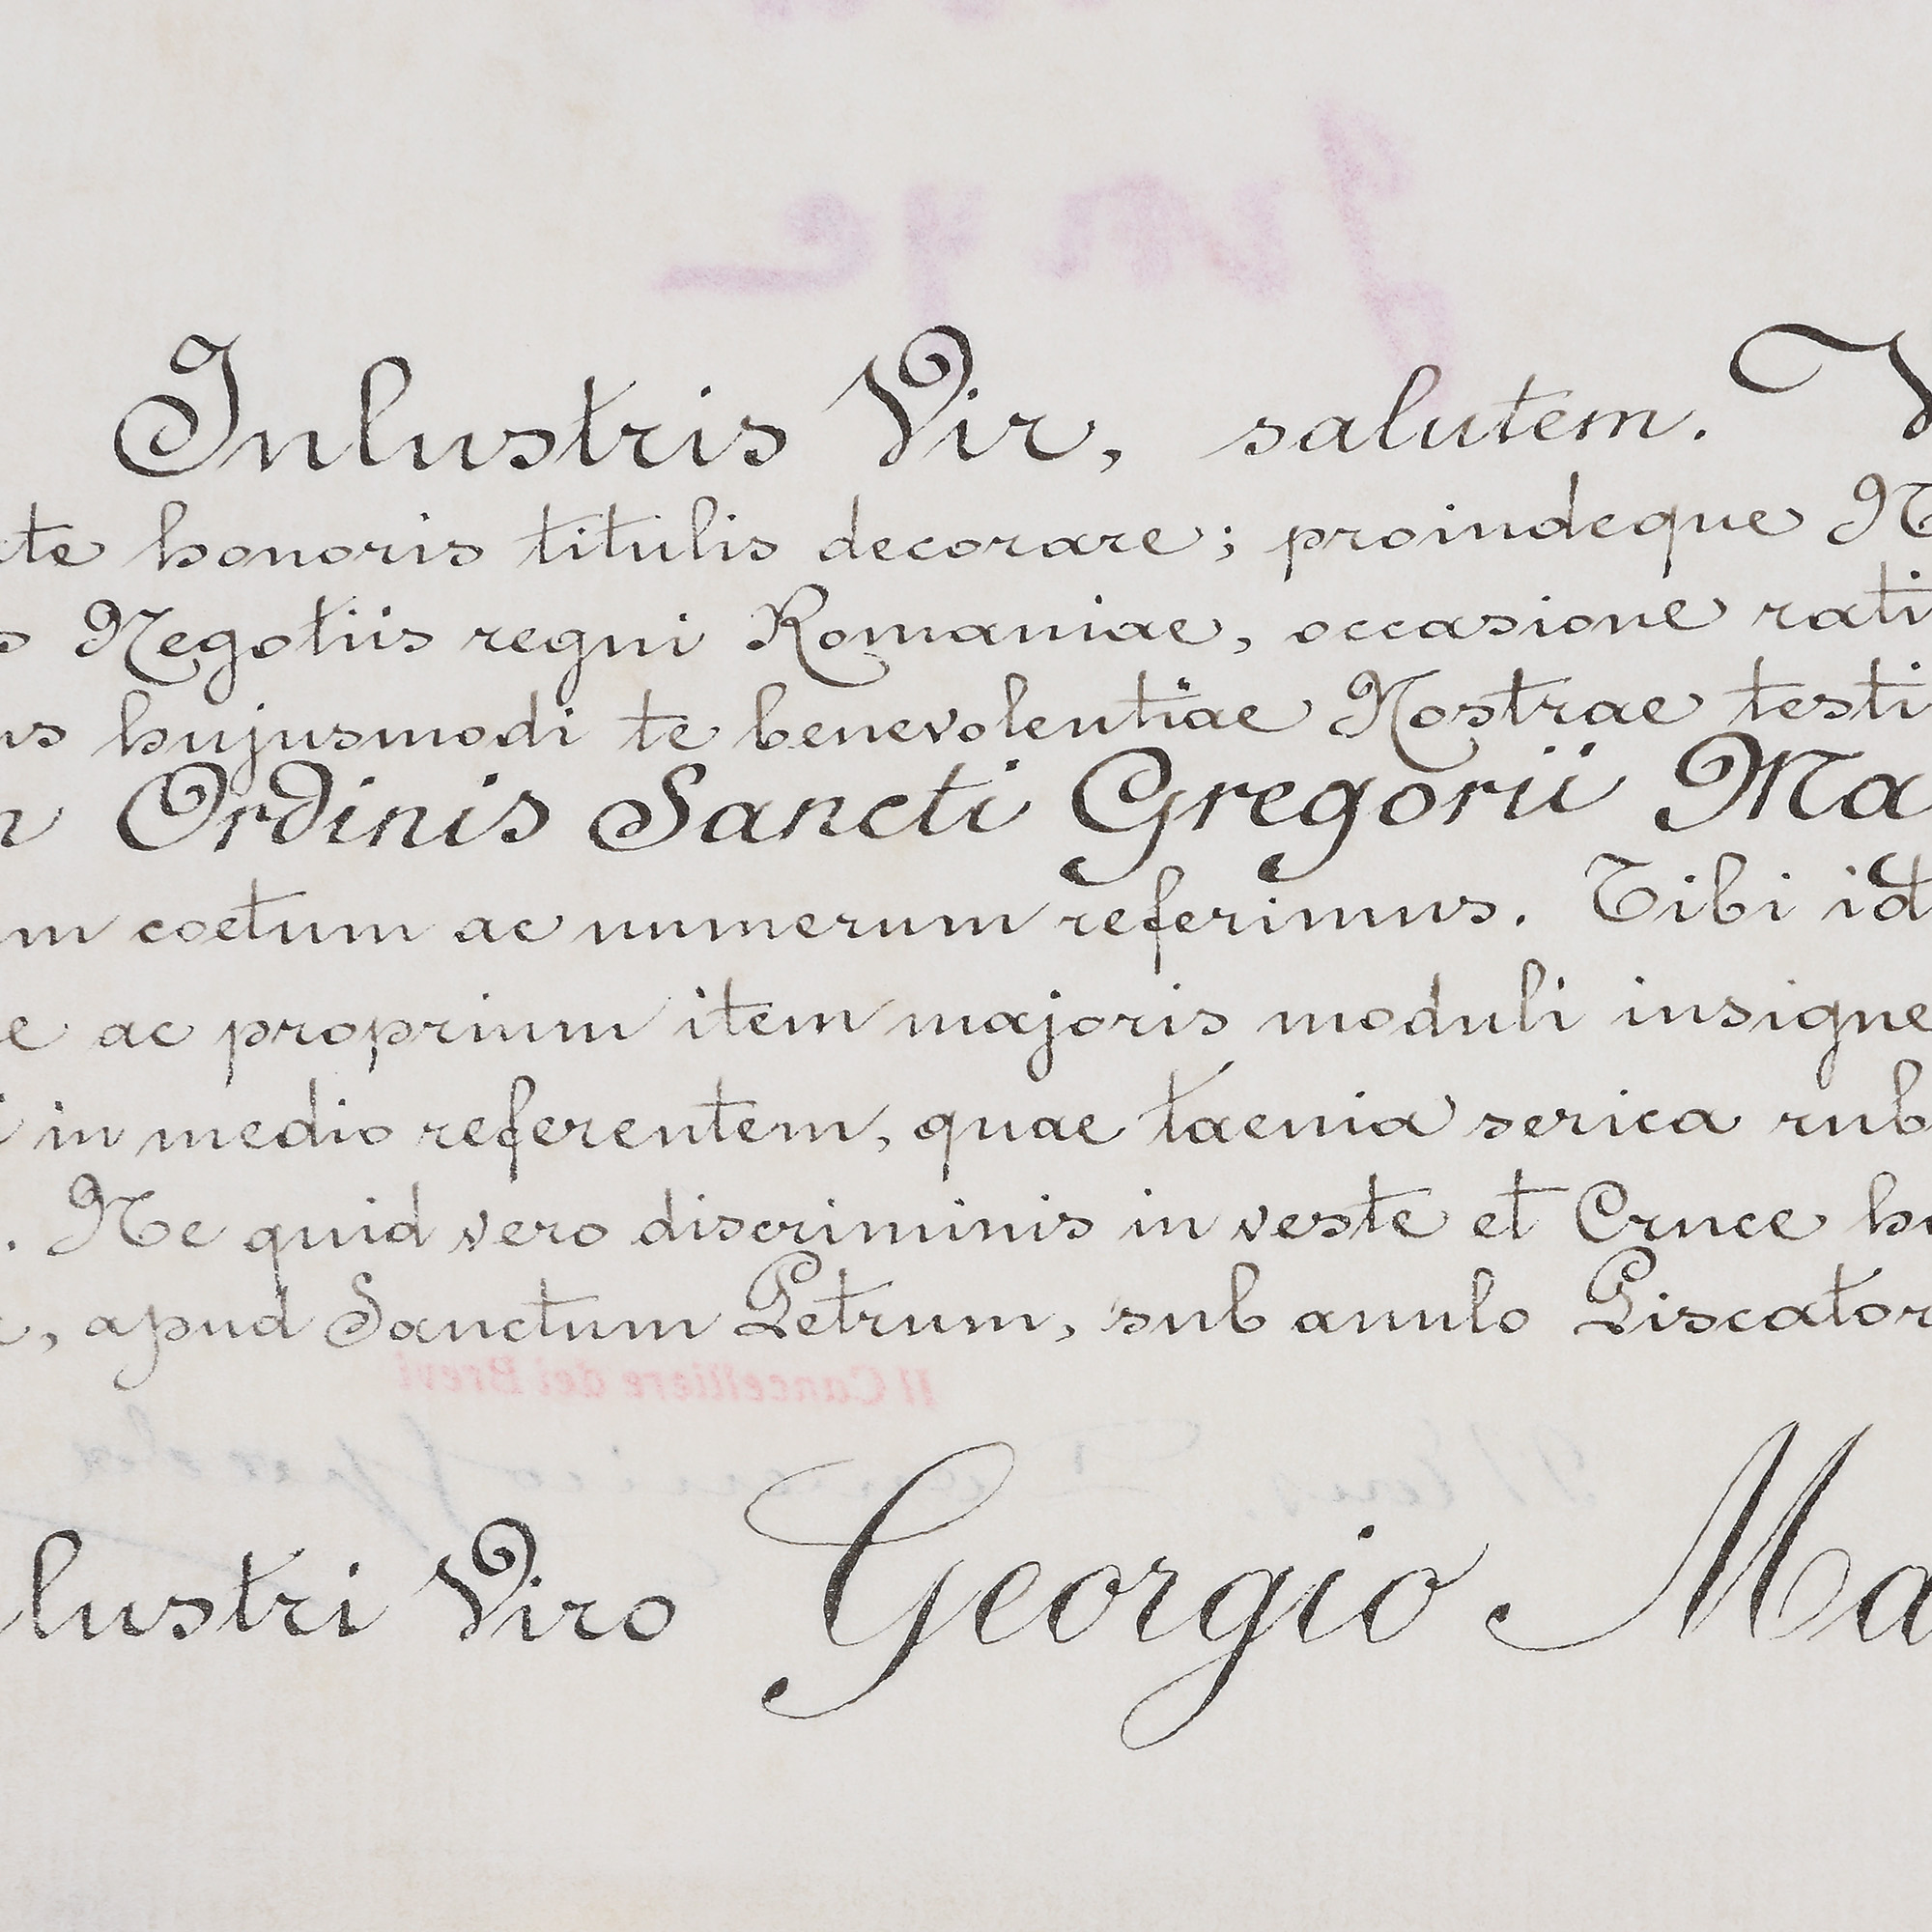 Inlustris Vir, salutem. V
cte honoris titulis decorare; proindeque N
s Negotiis regni Romaniae, occasione rati
us hujusmodi te benevolentiae Nostrae testi
n Ordinis Sancti Gregorii Ma
m coetum ac numerum referimus. Tibi id
e ac proprium item majoris moduli insigne
i in medio referentem, quae taenia serica rub
. Ne quid vero discriminis in veste et Cruce hu
, apud Sanctum Petrum, sub anulo Piscator
Il Cancelliere dei Brevi
lustri Viro Georgio Ma